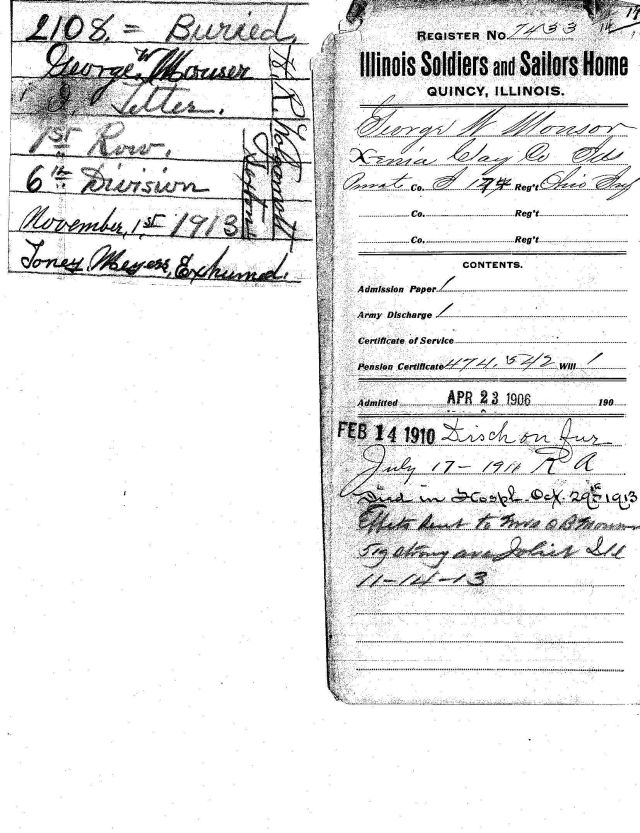 2108. = Buried,
George, W Mouser
Letter.
1st Row,
6th Division
November, 1.st 1913
Toney, Meyers, Exhumed.
REGISTER No. 7433
Illinois Soldiers and Sailors Home
QUINCY, ILLINOIS.
George W Monsor
Xenia Clay Co Ills
Privat Co. I 174 Reg't Ohio Inf
Co. Reg't
Co. Reg't
CONTENTS.
Admission Paper 1
Army Discharge 1
Certificate of Service
Pension Certificate 474,542 Will 1
Admitted APR 23 1906 190
FEB 14 1910 Disch on fur
July 17 - 1911 R A
Died in Hospl. Oct. 29th 1913
Effects sent to Mrs O B
519 Strong ave Joliet Ill
11-14-13